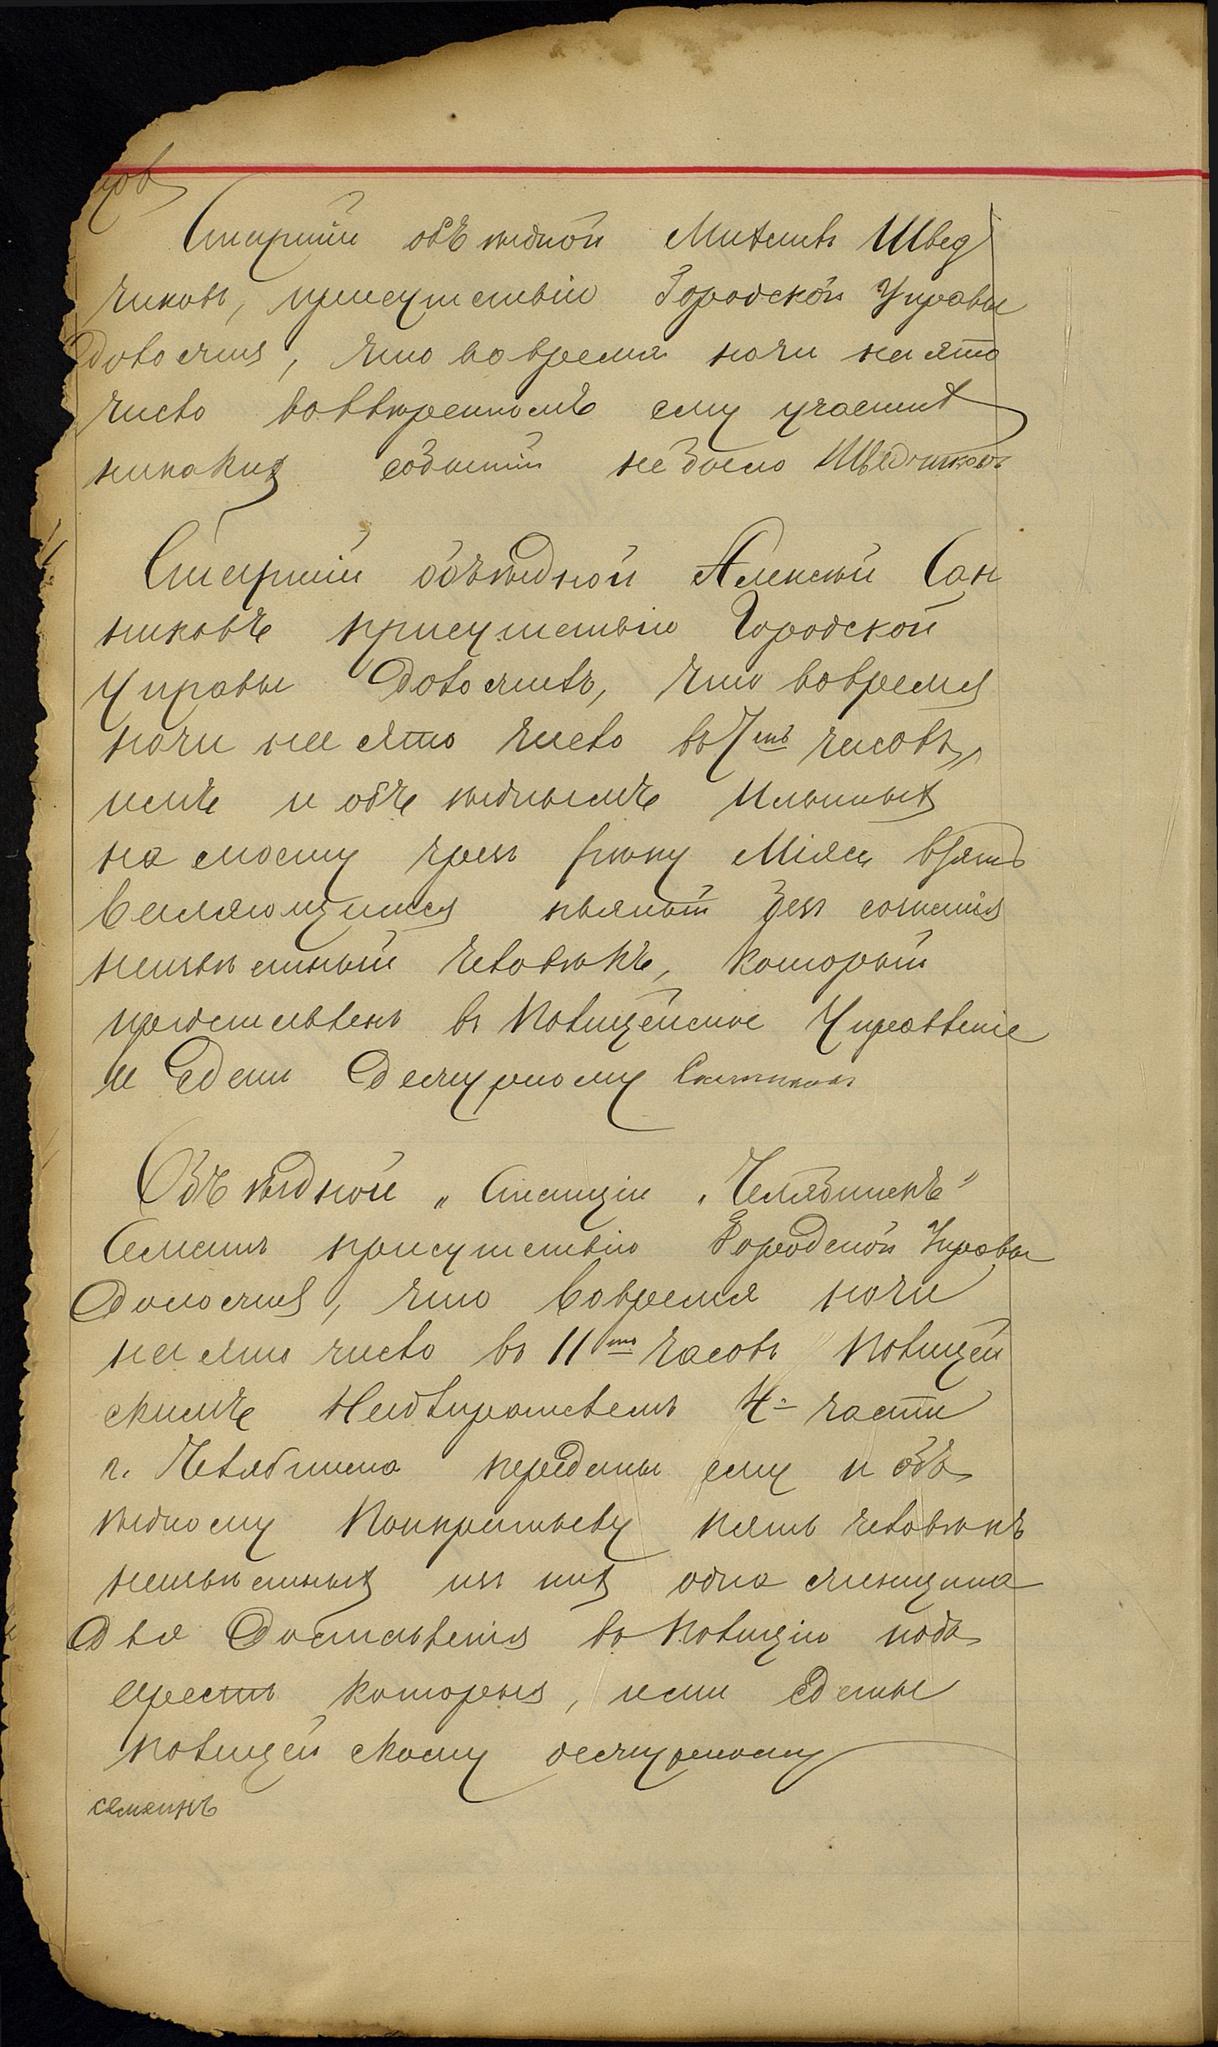 Старшій объѣздной Михаилъ Швед
чиковъ, присутствію Городской Управы
доложилъ, что вовремя ночи на это
число вовѣренномъ ему участкѣ
никакихъ событій не было Шведчиковъ
Старшій объѣздной Алексѣй Сан
никовъ присутствію Городской
Управы доложилъ, что вовремя
ночи на это число въ 7мь часовъ,
имъ и объѣзднымъ Ильиных
на мосту чрезъ рѣку Міясъ взятъ
валяющимся пьяный безъ сознанія
неизвѣстный человѣкъ, который
представленъ въ Полицейское Управленіе
и сданъ дежурному Санниковъ
Объѣздной „Станціи „Челябинскъ"
присутствію Городской Управы
доложилъ, что вовремя ночи
на это число въ 11ть часовъ Полицей
скимъ Надзирателемъ 4й части
г. Челябинска переданы ему и объ
ѣздному Панкратьеву пять человѣкъ
неизвѣстныхъ изъ нихъ одна женщина
для доставленія въ Полицію подъ
арестъ которыя, ими сданы
полицейскому дежурному